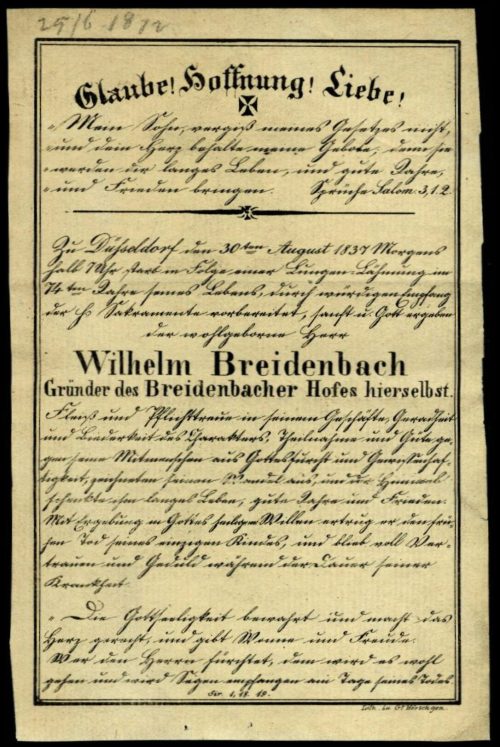 25/6 1872
Glaube! Hoffnung! Liebe!
„Mein Sohn, vergiß meines Gesetzes nicht,
„und dein Herz behalte meine Gebote, denn sie
„werden dir langes Leben, und gute Jahre,
„und Frieden bringen. Sprüche Salom. 3,1.2.
Zu Düsseldorf den 30ten August 1837 Morgens
halb 7 Uhr starb in Folge einer Lungen-Lähmung im
74ten Jahre seines Lebens, durch würdigen Empfang
der h. Sakramente vorbereitet, sanft u. Gott ergeben
der wohlgeborne Herr
Wilhelm Breidenbach
Gründer des Breidenbacher Hofes hierselbst.
Fleiß und Pflichttreue in seinem Geschäfte, Geradheit
und Biederkeit des Charakters, Theilnahme und Güte ge-
gen seine Mitmenschen aus Gottesfurcht und Gewissenhaf-
tigkeit, zeichneten seinen Wandel aus, und der Himmel
schenkte ihm langes Leben, gute Jahre und Frieden.
Mit Ergebung in Gottes heiligen Willen ertrug er den frü-
hen Tod seines einzigen Kindes, und blieb voll Ver-
trauen und Geduld während der Dauer seiner
Krankheit.
„Die Gottseeligkeit bewahrt und macht das
Herz gerecht, und gibt Wonne und Freude.
Wer den Herrn fürchtet, dem wird es wohl
gehen und wird Segen empfangen am Tage seines Todes
Sir. 1, 18. 19.
Lith. bei